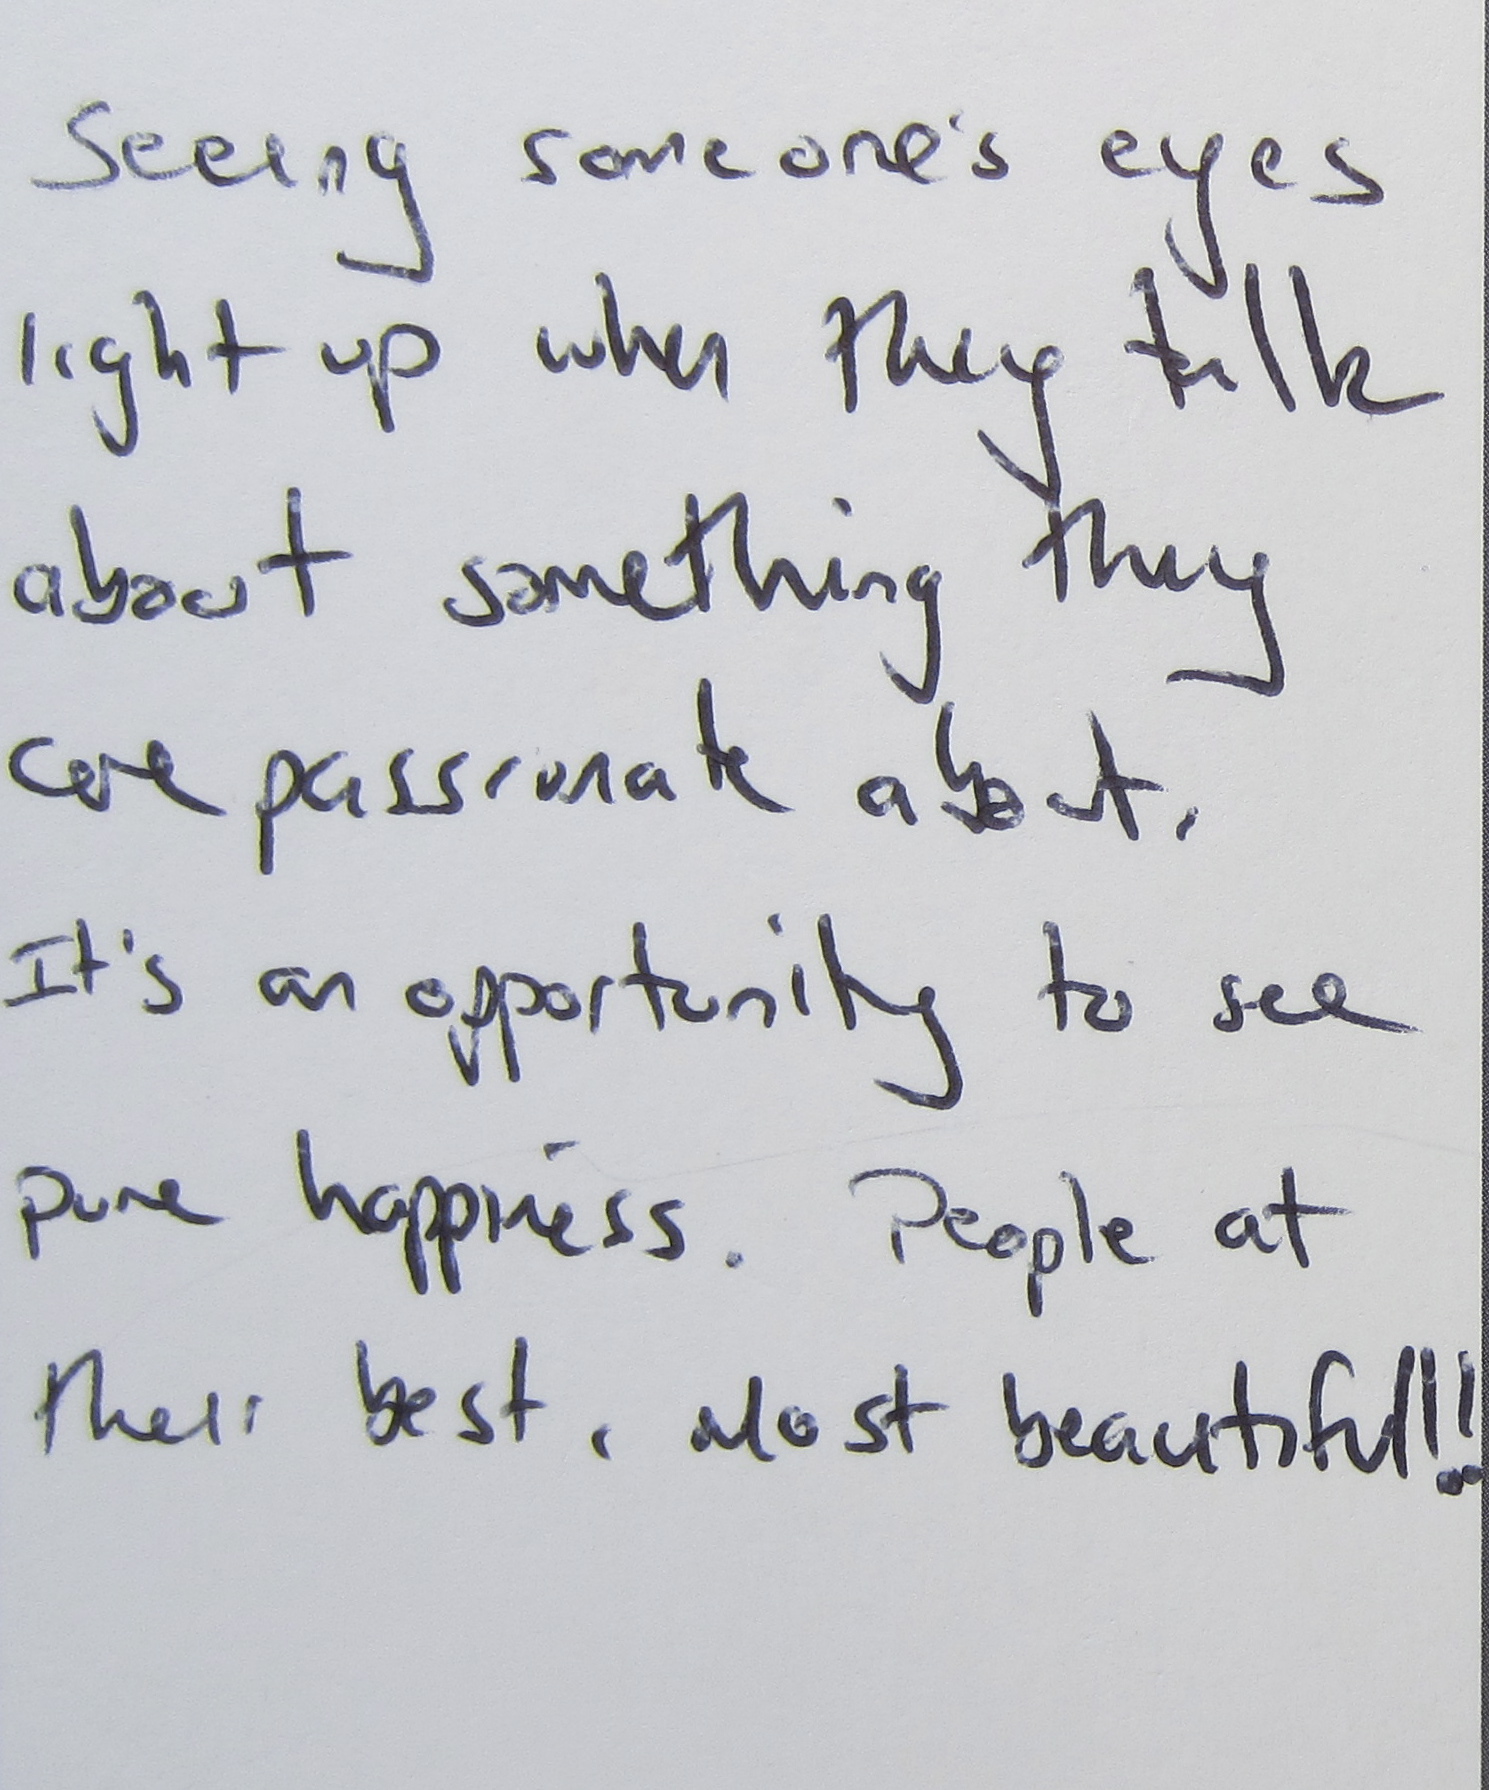 Seeing someone's eyes
light up when they talk
about something they
are passionate about.
It's an opportunity to see
pure happiness. People at
their best, most beautiful!!